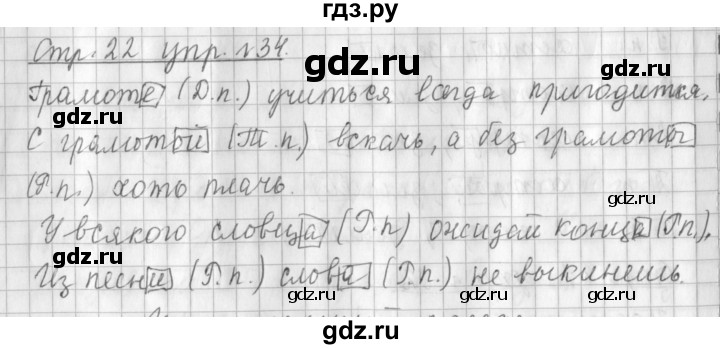 гдз.ру
Стр. 22 упр. №34.
gdz.ru
Грамоте (Д.п.) учиться всегда пригодится.
С грамотой (Т.п.) вскачь, а без грамоты
(Р.п.) хоть плачь.
gdz.ru gdz.ru
У всякого словца (Р.п) ожидай конца (Р.п.).
gdz.ru gdz.ru
Из песни (Р.п.) слова (Р.п.) не выкинешь.
gdz.ru
gdz.ru